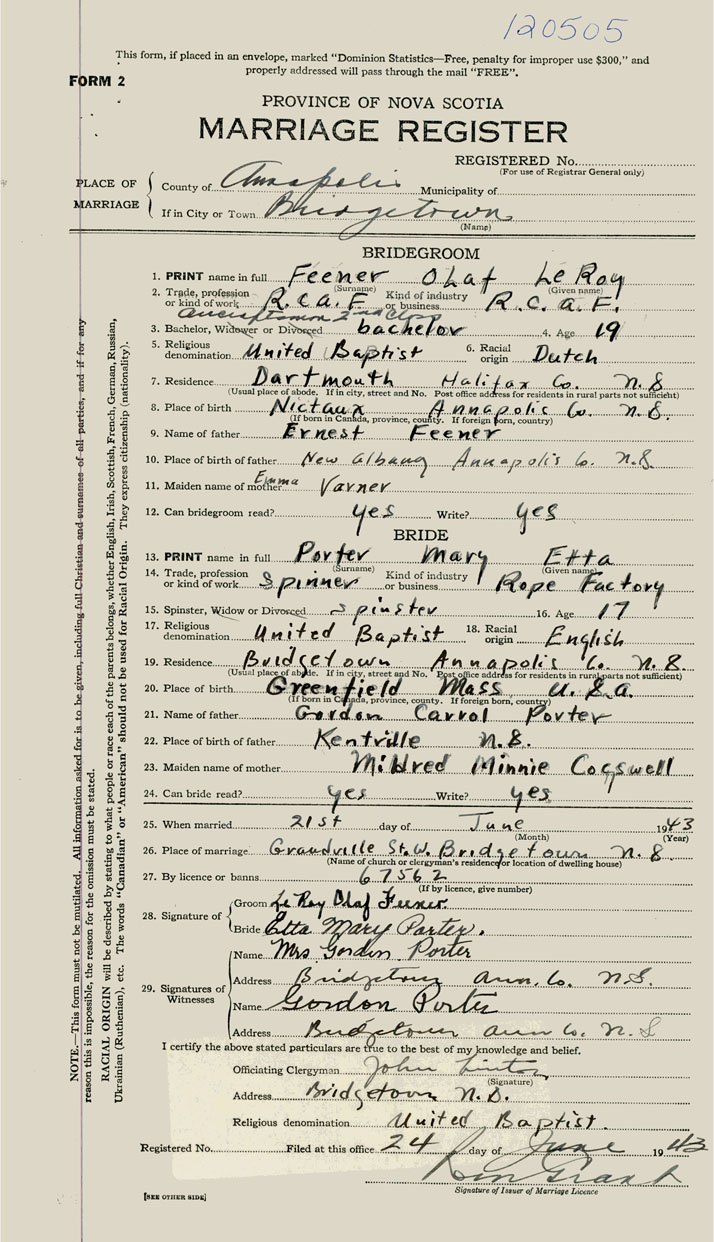 120505
This form, if placed in an envelope, marked "Dominion Statistics—Free, penalty for improper use $300," and
properly addressed will pass through the mail "FREE".
FORM 2
PROVINCE OF NOVA SCOTIA
MARRIAGE REGISTER
REGISTERED No.
(For use of Registrar General only)
PLACE OF MARRIAGE
County of Annapolis Municipality of
If in City or Town Bridgetown
(Name)
BRIDEGROOM
1. PRINT name in full Feener Olaf LeRoy
(Surname) (Given name)
2. Trade, profession or kind of work R.C.A.F Kind of industry or business R.C.A.F.
Aircraftsman 2nd Class
3. Bachelor, Widower or Divorced bachelor 4. Age 19
5. Religious denomination United Baptist 6. Racial origin Dutch
7. Residence Dartmouth Halifax Co. N.S
(Usual place of abode. If in city, street and No. Post office address for residents in rural parts not sufficient)
8. Place of birth Nictaux Annapolis Co. N.S.
(If born in Canada, province, county. If foreign born, country)
9. Name of father Ernest Feener
10. Place of birth of father New Albany Annapolis Co. N.S
11. Maiden name of mother Emma Varner
12. Can bridegroom read? yes Write? yes
BRIDE
13. PRINT name in full Porter Mary Etta
(Surname) (Given name)
14. Trade, profession or kind of work Spinner Kind of industry or business Rope Factory
15. Spinster, Widow or Divorced Spinster 16. Age 17
17. Religious denomination United Baptist 18. Racial origin English
19. Residence Bridgetown Annapolis Co. N.S.
(Usual place of abode. If in city, street and No. Post office address for residents in rural parts not sufficient)
20. Place of birth Greenfield Mass U.S.A.
(If born in Canada, province, county. If foreign born, country)
21. Name of father Gordon Carrol Porter
22. Place of birth of father Kentville N.S.
23. Maiden name of mother Mildred Minnie Cogswell
24. Can bride read? yes Write? yes
25. When married 21st day of June 1943
(Month) (Year)
26. Place of marriage Grandville St. W. Bridgetown N.S.
(Name of church or clergyman's residence or location of dwelling house)
27. By licence or banns 67562
(If by licence, give number)
28. Signature of
Groom LeRoy Olaf Feener
Bride Etta Mary Porter.
29. Signatures of Witnesses
Name Mrs Gordon Porter
Address Bridgetown Ann. Co. N.S.
Name Gordon Porter
Address Bridgetown Ann Co. N.S
I certify the above stated particulars are true to the best of my knowledge and belief.
Officiating Clergyman John Linton
(Signature)
Address Bridgetown N.S.
Religious denomination United Baptist.
Registered No. Filed at this office 24 day of June 1943
Grant
Signature of Issuer of Marriage Licence
[SEE OTHER SIDE]
NOTE.—This form must not be mutilated. All information asked for is to be given, including full Christian and surnames of all parties, and if for any
reason this is impossible, the reason for the omission must be stated.
RACIAL ORIGIN will be described by stating to what people or race each of the parents belongs, whether English, Irish, Scottish, French, German, Russian,
Ukrainian (Ruthenian), etc. The words "Canadian" or "American" should not be used for Racial Origin. They express citizenship (nationality).